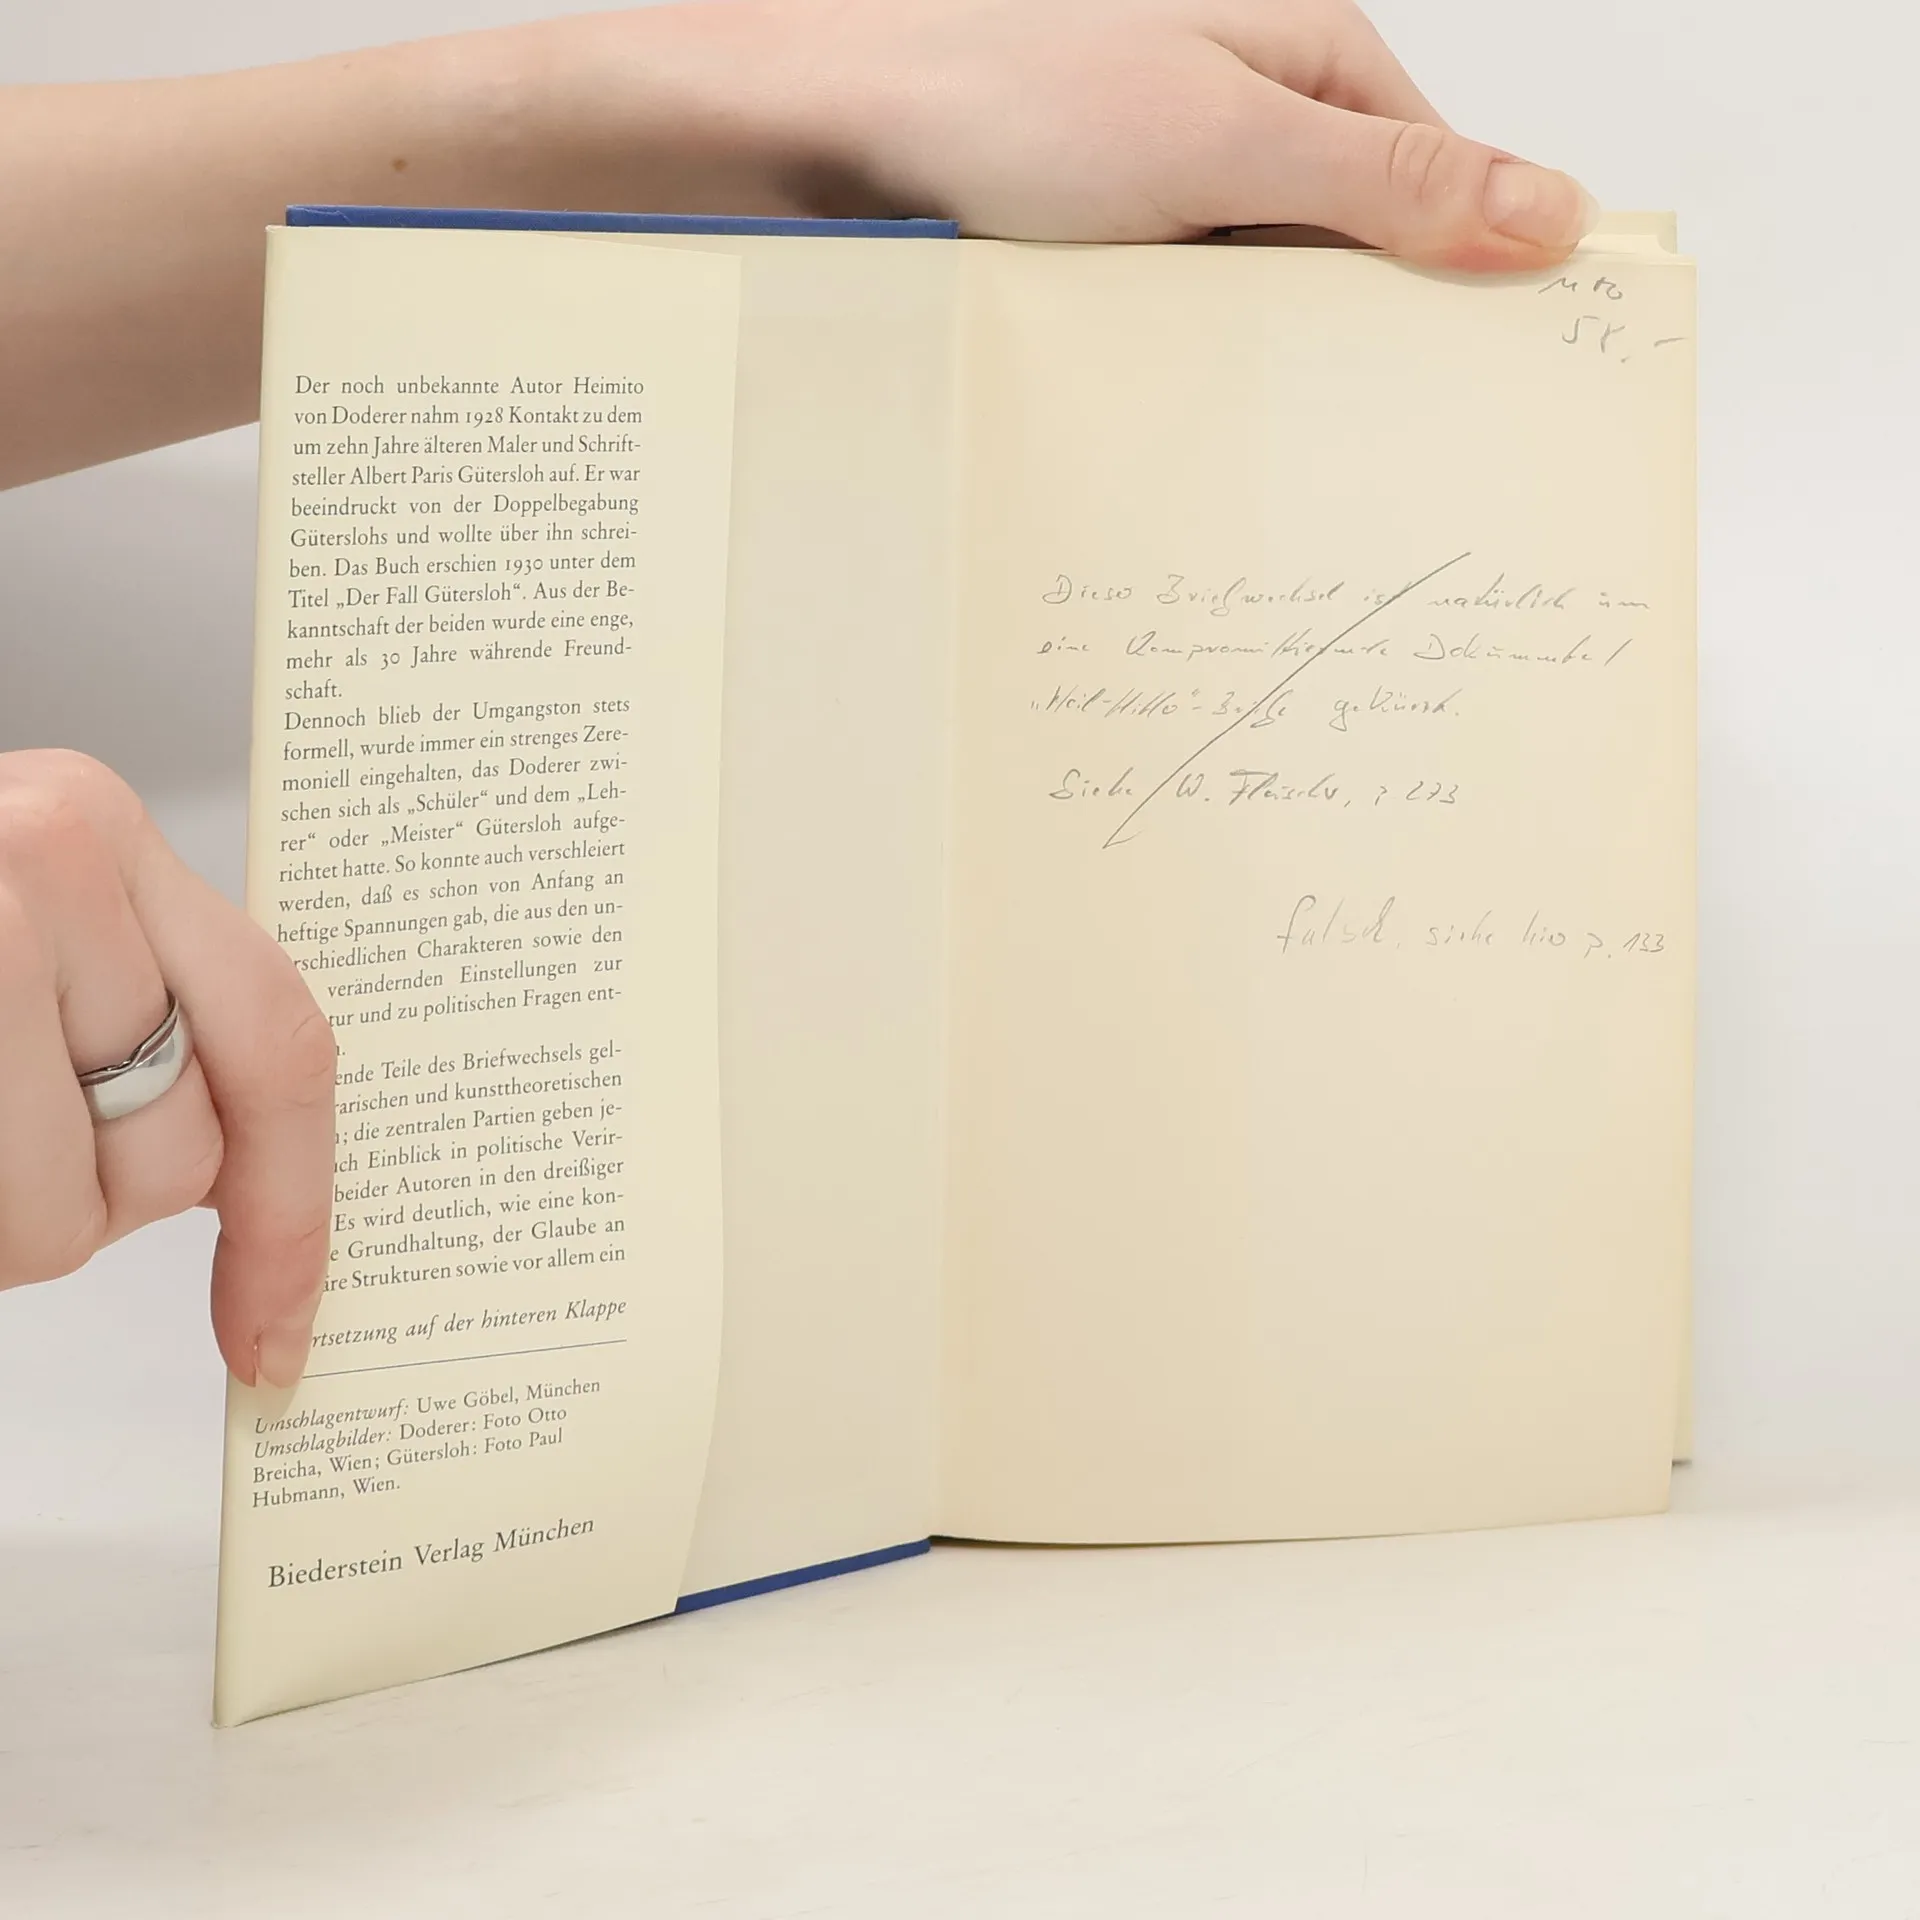 Der noch unbekannte Autor Heimito
von Doderer nahm 1928 Kontakt zu dem
um zehn Jahre älteren Maler und Schrift-
steller Albert Paris Gütersloh auf. Er war
beeindruckt von der Doppelbegabung
Güterslohs und wollte über ihn schrei-
ben. Das Buch erschien 1930 unter dem
Titel „Der Fall Gütersloh“. Aus der Be-
kanntschaft der beiden wurde eine enge,
mehr als 30 Jahre währende Freund-
schaft.
Dennoch blieb der Umgangston stets
formell, wurde immer ein strenges Zere-
moniell eingehalten, das Doderer zwi-
schen sich als „Schüler“ und dem „Leh-
rer“ oder „Meister“ Gütersloh aufge-
richtet hatte. So konnte auch verschleiert
werden, daß es schon von Anfang an
heftige Spannungen gab, die aus den un-
rschiedlichen Charakteren sowie den
verändernden Einstellungen zur
tur und zu politischen Fragen ent-
n.
ende Teile des Briefwechsels gel-
rarischen und kunsttheoretischen
; die zentralen Partien geben je-
ch Einblick in politische Verir-
beider Autoren in den dreißiger
Es wird deutlich, wie eine kon-
e Grundhaltung, der Glaube an
äre Strukturen sowie vor allem ein
rtsetzung auf der hinteren Klappe
Umschlagentwurf: Uwe Göbel, München
Umschlagbilder: Doderer: Foto Otto
Breicha, Wien; Gütersloh: Foto Paul
Hubmann, Wien.
Biederstein Verlag München
Dieser Briefwechsel ist natürlich um
eine
"Heil-Hitler"-Briefe gekürzt.
Siehe W. Fleischer, p 273
falsch, siehe hier p. 133